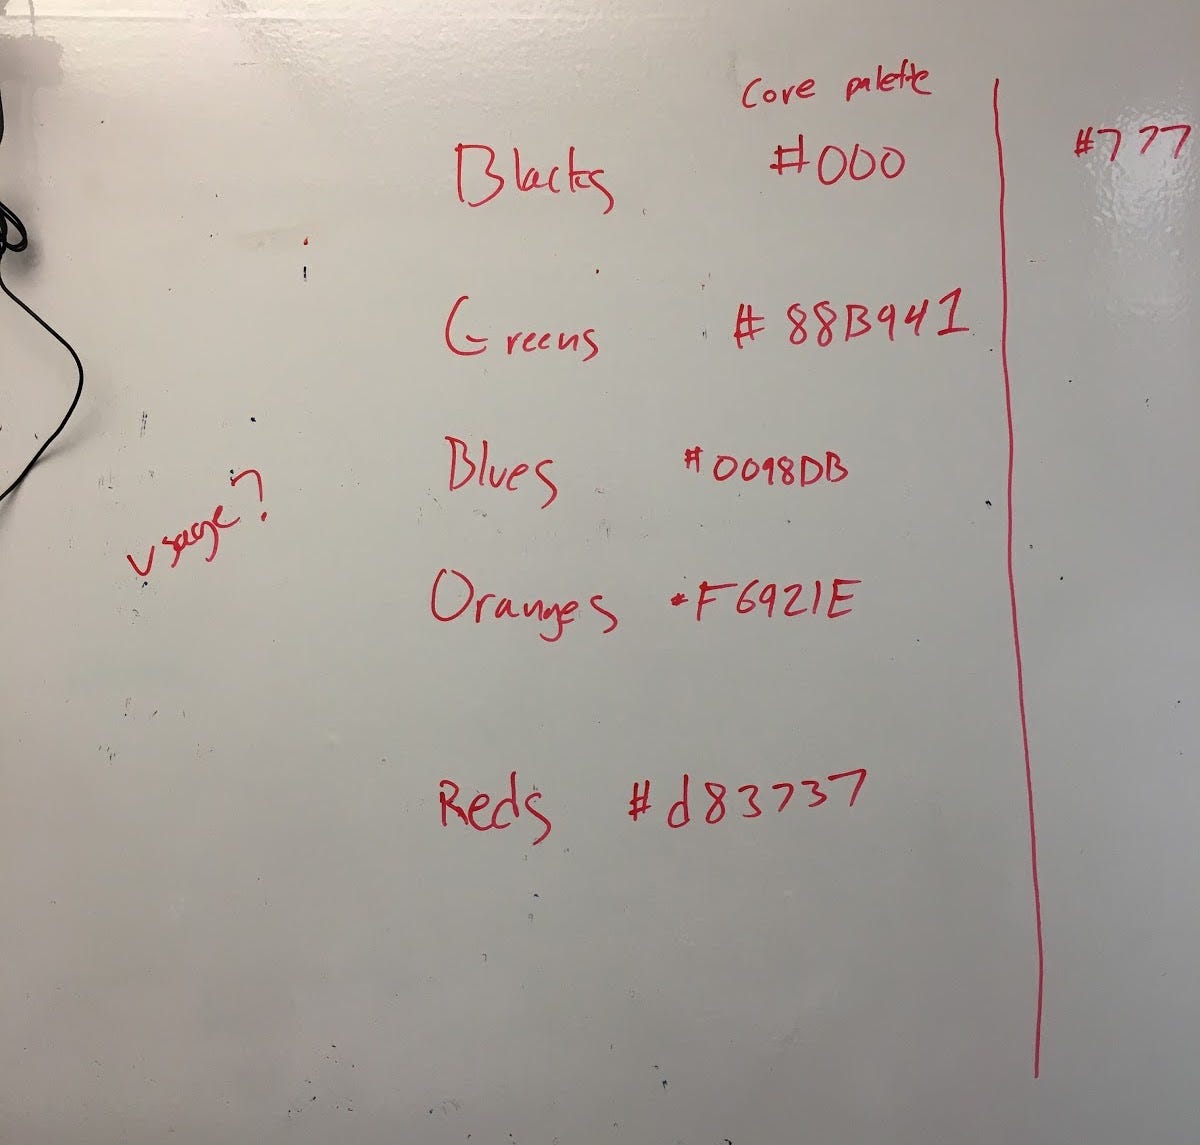 Core palette
Blacks #000 #777
Greens #88B941
Blues #0098DB
usage?
Oranges #F6921E
Reds #d83737